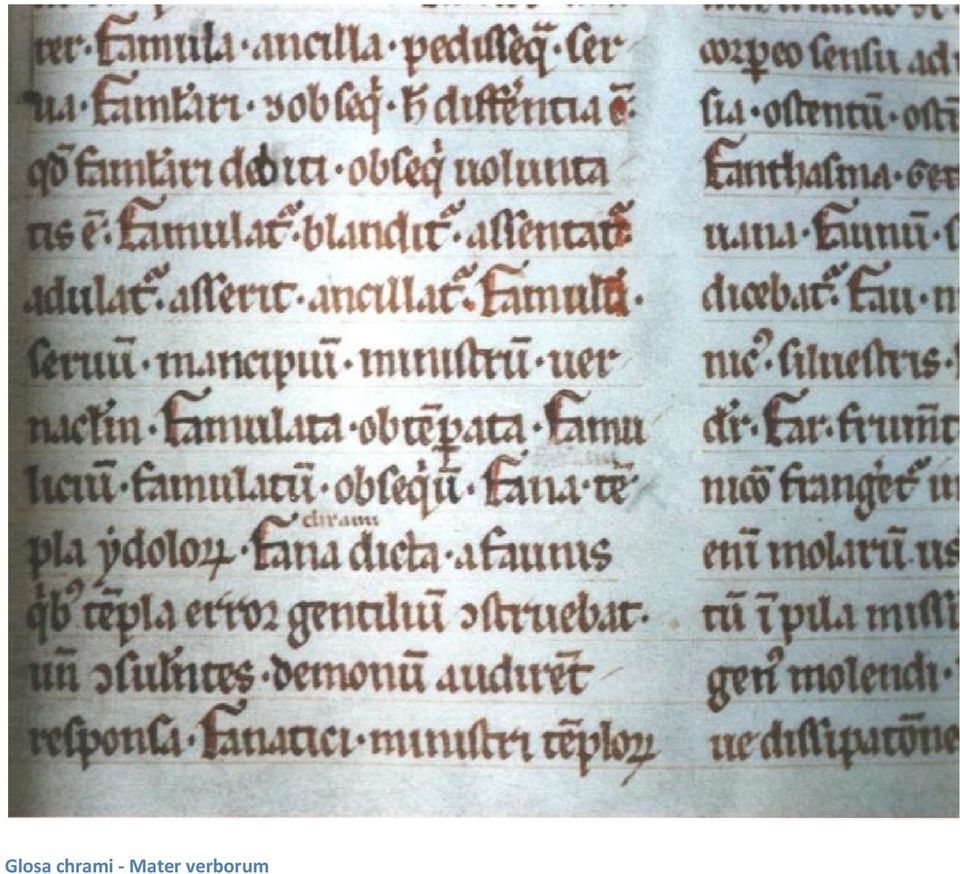 ter · Famula · ancilla · pedisseq̃ · ser
ua · Famłari · ɔobseq̇ · ħ differ̃tia ē ·
qd̄ famłari debiti · obseq̇ uolunta
tis ē · Famulat᷑ · blandit᷑ · assentat᷑
adulat᷑ · asserit · ancillat᷑ · Famulū ·
seruū · mancipiū · ministrū · uer
nacłm · Famulata · obtēꝑata · Famu
liciū · famulatū · obseq̇ū · Fana · tē
chrami
pla ẏdoloꝝ · Fana dicta · a faunis
q̇bꝰ tēpla error gentiliū ɔstruebat ·
un̄ ɔsułntes · demonū audirēt
responsa · Fanatici · ministri tēploꝝ
corꝑeo sensu
sia · ostentū ·
Fanthasma ·
uana · Faunū ·
dicebat᷑ · Fau ·
nicꝰ · siluestris ·
dr̄ · Far · frum̄t
nicō frang̾et᷑
enī molarū
tū ī pila
genꝰ molendi ·
ue dissipatōne
Glosa chrami - Mater verborum